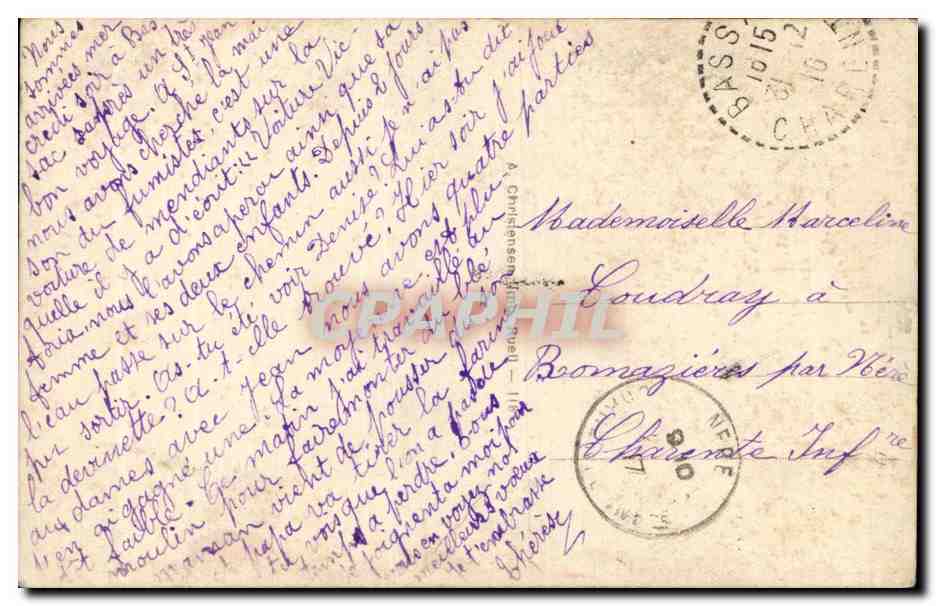 Nous
sommes
arrivées mer
credi soir à Bas
sac, après un très
bon voyage. À St Jean
nous avons cherché la mai
son du fumiste, c'est une
voiture de mendiants sur la
quelle il y a d'écrit: "Voiture Vic
toria. nous l'avons aperçu ainsi que sa
femme et ses deux enfants. Depuis 2 jours
l'eau passe sur le chemin aussi je n'ai pas
pu sortir. As-tu été voir Denise? Qui as-tu dit
la devinette? A-t-elle trouvé? Hier soir j'ai joué
aux dames avec Jean nous avons quatre parties
j'en ai gagné une. La moyenne est plu
tôt faible. Ce matin j'ai travaillé au
moulin pour faire monter du blé
maman vient de pousser la
et papa va tirer la farine
tu vois que l'on a pas de
temps à perdre. Tous
se joignent à moi pour
t'envoyer nos
meilleurs voeux
Je t'embrasse
Thérèse
A. Christensen, Rueil
BASSAC
16 15
31 12
16
CHARENTE
Mademoiselle Marceline
Coudray à
Romazières par Néré
Charente Infre
NERE
CPAPHIL